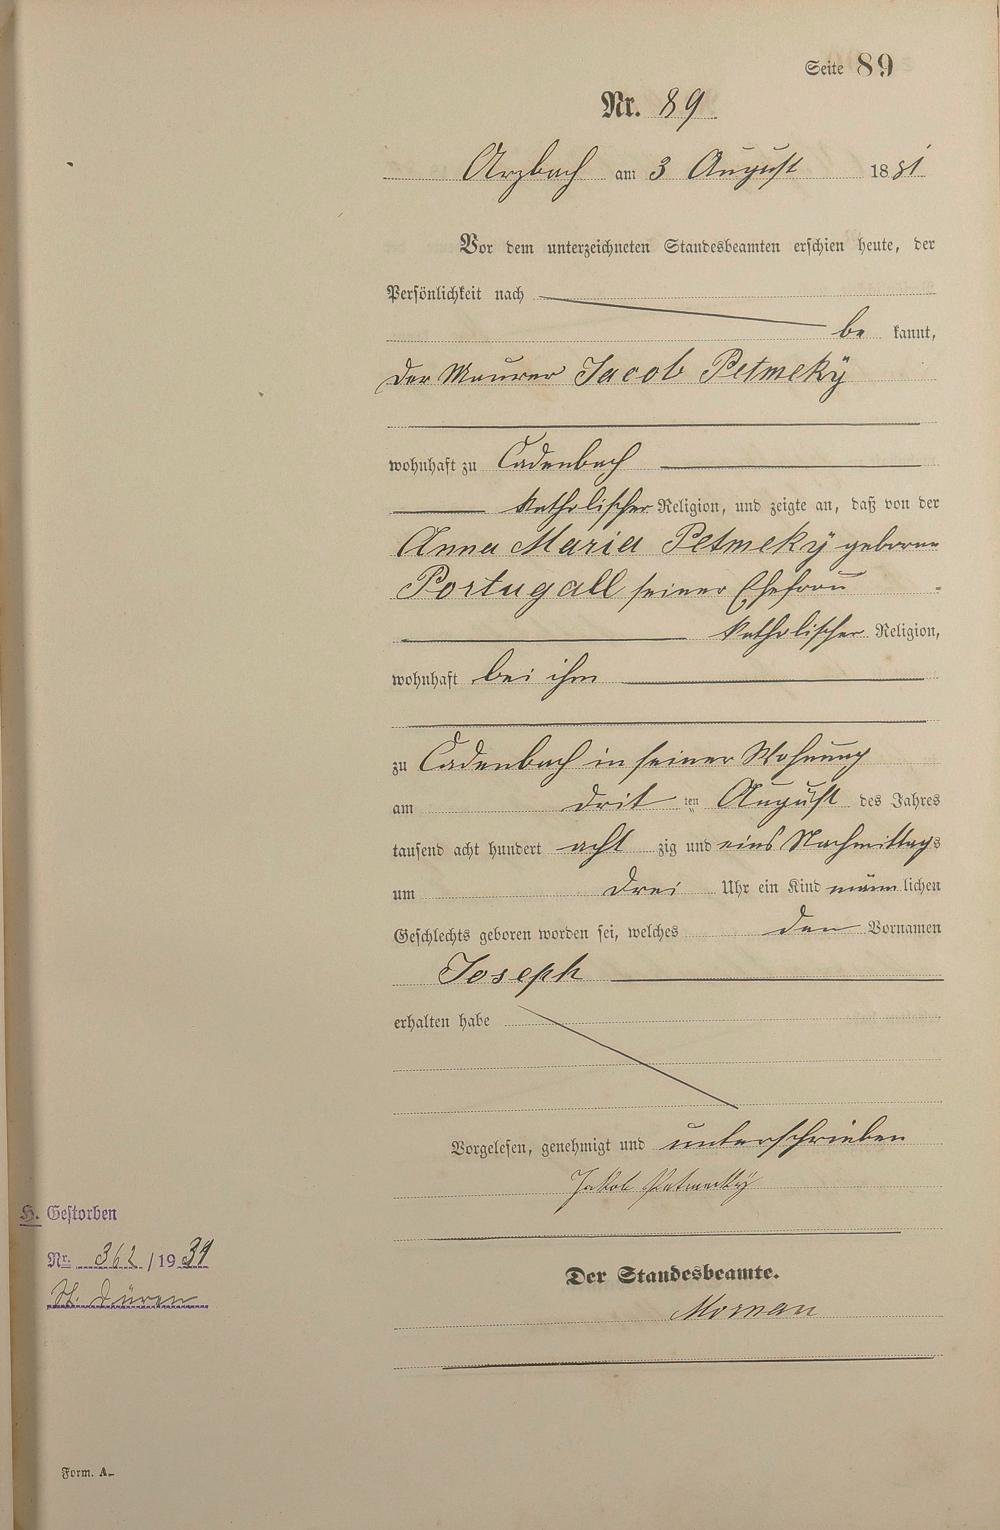 Seite 89
Nr. 89
Arzbach am 3 August 1881
Vor dem unterzeichneten Standesbeamten erschien heute, der
Persönlichkeit nach
be kannt,
der Maurer Jacob Petmekÿ
wohnhaft zu Cadenbach
katholischer Religion, und zeigte an, daß von der
Anna Maria Petmekÿ geborne
Portugall seiner Ehefrau
katholischer Religion,
wohnhaft bei ihm
zu Cadenbach in seiner Wohnung
am drit ten August des Jahres
tausend acht hundert acht zig und eins Nachmittags
um drei Uhr ein Kind männ lichen
Geschlechts geboren worden sei, welches den Vornamen
Joseph
erhalten habe
Vorgelesen, genehmigt und unterschrieben
Jakob Petmecky
H. Gestorben
Nr. 362/1939
St. Düren
Der Standesbeamte.
Form. A.